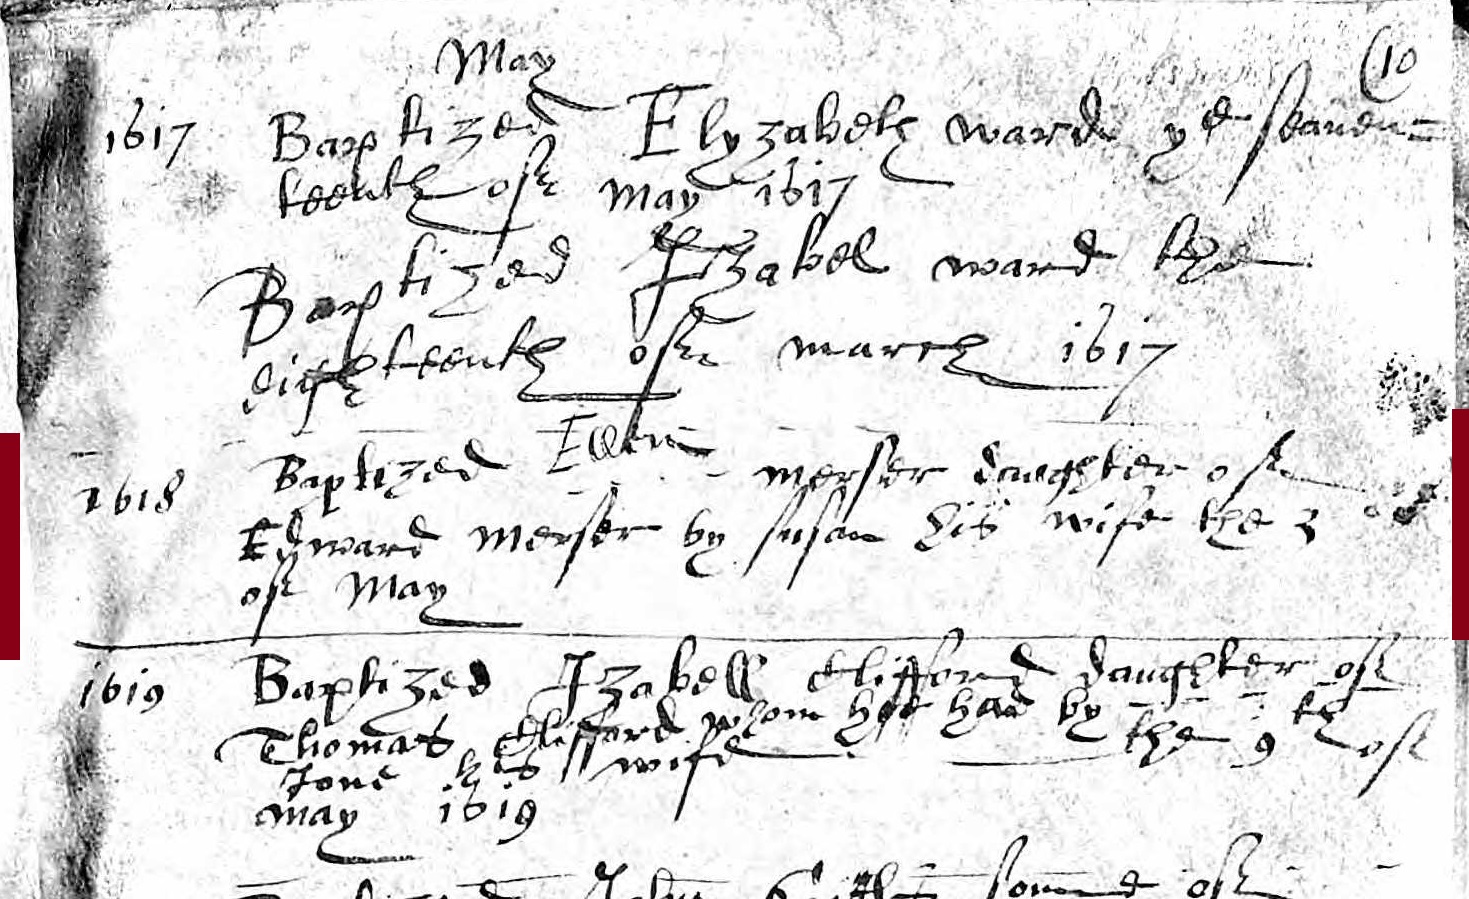 (10
May
1617 Baptized Elyzabeth ward ye seauen=
teenth of May 1617
Baptized Izabel ward the
eighteenth of march 1617
1618 Baptized Ellin merser daughter of
Edward merser by susan his wife the 3
of May
1619 Baptized Izabell Clifford daughter of
Thomas Clifford whom hee had by
Jone his wife the 9th of
may 1619
Baptized John sonne of